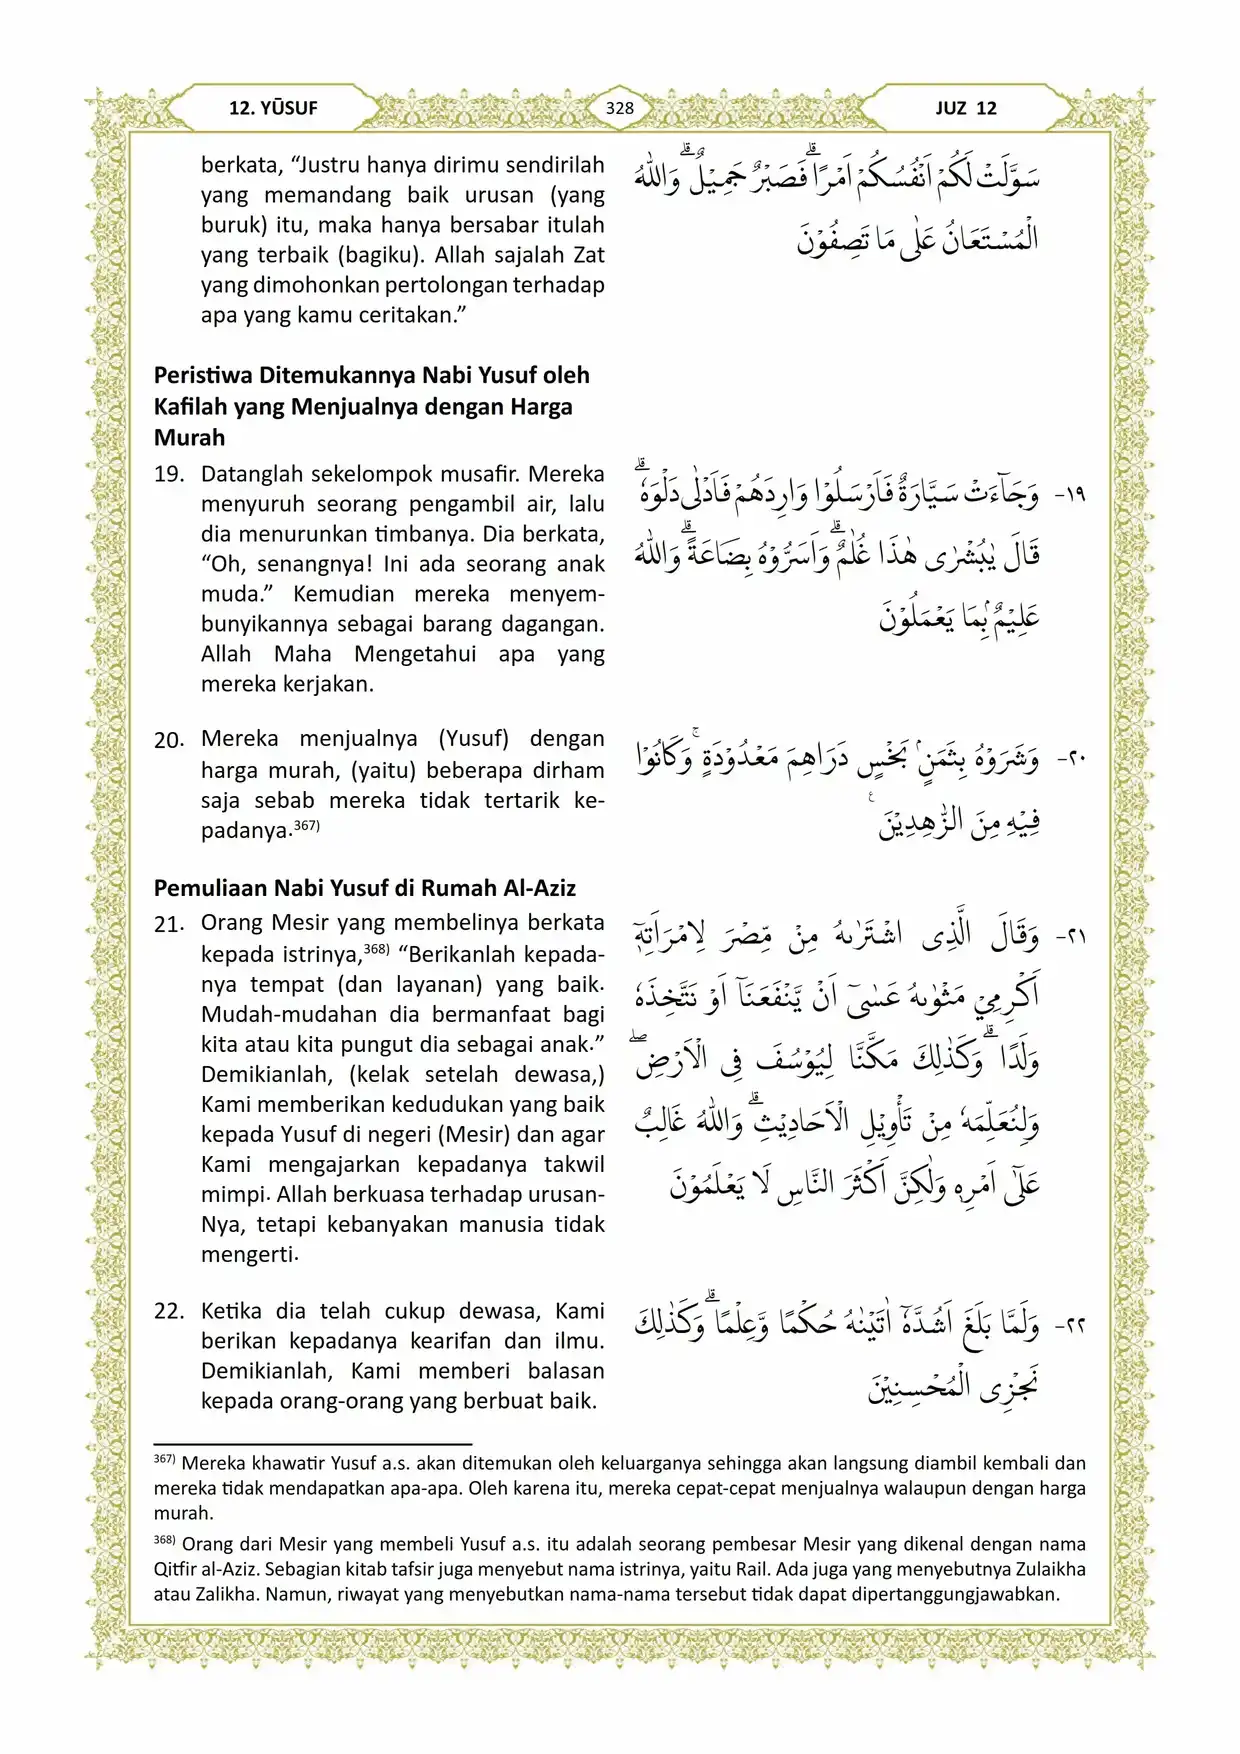 12. YŪSUF
328
JUZ 12
berkata, “Justru hanya dirimu sendirilah
yang memandang baik urusan (yang
buruk) itu, maka hanya bersabar itulah
yang terbaik (bagiku). Allah sajalah Zat
yang dimohonkan pertolongan terhadap
apa yang kamu ceritakan.”
سَوَّلَتْ لَكُمْ اَنْفُسُكُمْ اَمْرًاۗ فَصَبْرٌ جَمِيْلٌۗ وَاللّٰهُ
الْمُسْتَعَانُ عَلٰى مَا تَصِفُوْنَ
Peristiwa Ditemukannya Nabi Yusuf oleh
Kafilah yang Menjualnya dengan Harga
Murah
19. Datanglah sekelompok musafir. Mereka
menyuruh seorang pengambil air, lalu
dia menurunkan timbanya. Dia berkata,
“Oh, senangnya! Ini ada seorang anak
muda.” Kemudian mereka menyem-
bunyikannya sebagai barang dagangan.
Allah Maha Mengetahui apa yang
mereka kerjakan.
١٩- وَجَاۤءَتْ سَيَّارَةٌ فَاَرْسَلُوْا وَارِدَهُمْ فَاَدْلٰى دَلْوَهٗۗ
قَالَ يٰبُشْرٰى هٰذَا غُلٰمٌۗ وَاَسَرُّوْهُ بِضَاعَةًۗ وَاللّٰهُ
عَلِيْمٌۢ بِمَا يَعْمَلُوْنَ
20. Mereka menjualnya (Yusuf) dengan
harga murah, (yaitu) beberapa dirham
saja sebab mereka tidak tertarik ke-
padanya.³⁶⁷⁾
٢٠- وَشَرَوْهُ بِثَمَنٍۢ بَخْسٍ دَرَاهِمَ مَعْدُوْدَةٍۚ وَكَانُوْا
فِيْهِ مِنَ الزّٰهِدِيْنَ ࣖ
Pemuliaan Nabi Yusuf di Rumah Al-Aziz
21. Orang Mesir yang membelinya berkata
kepada istrinya,³⁶⁸⁾ “Berikanlah kepada-
nya tempat (dan layanan) yang baik.
Mudah-mudahan dia bermanfaat bagi
kita atau kita pungut dia sebagai anak.”
Demikianlah, (kelak setelah dewasa,)
Kami memberikan kedudukan yang baik
kepada Yusuf di negeri (Mesir) dan agar
Kami mengajarkan kepadanya takwil
mimpi. Allah berkuasa terhadap urusan-
Nya, tetapi kebanyakan manusia tidak
mengerti.
٢١- وَقَالَ الَّذِى اشْتَرٰىهُ مِنْ مِّصْرَ لِامْرَاَتِهٖٓ
اَكْرِمِيْ مَثْوٰىهُ عَسٰىٓ اَنْ يَّنْفَعَنَآ اَوْ نَتَّخِذَهٗ
وَلَدًاۗ وَكَذٰلِكَ مَكَّنَّا لِيُوْسُفَ فِى الْاَرْضِۖ
وَلِنُعَلِّمَهٗ مِنْ تَأْوِيْلِ الْاَحَادِيْثِۗ وَاللّٰهُ غَالِبٌ
عَلٰٓى اَمْرِهٖ وَلٰكِنَّ اَكْثَرَ النَّاسِ لَا يَعْلَمُوْنَ
22. Ketika dia telah cukup dewasa, Kami
berikan kepadanya kearifan dan ilmu.
Demikianlah, Kami memberi balasan
kepada orang-orang yang berbuat baik.
٢٢- وَلَمَّا بَلَغَ اَشُدَّهٗٓ اٰتَيْنٰهُ حُكْمًا وَّعِلْمًاۗ وَكَذٰلِكَ
نَجْزِى الْمُحْسِنِيْنَ
³⁶⁷⁾ Mereka khawatir Yusuf a.s. akan ditemukan oleh keluarganya sehingga akan langsung diambil kembali dan
mereka tidak mendapatkan apa-apa. Oleh karena itu, mereka cepat-cepat menjualnya walaupun dengan harga
murah.
³⁶⁸⁾ Orang dari Mesir yang membeli Yusuf a.s. itu adalah seorang pembesar Mesir yang dikenal dengan nama
Qitfir al-Aziz. Sebagian kitab tafsir juga menyebut nama istrinya, yaitu Rail. Ada juga yang menyebutnya Zulaikha
atau Zalikha. Namun, riwayat yang menyebutkan nama-nama tersebut tidak dapat dipertanggungjawabkan.